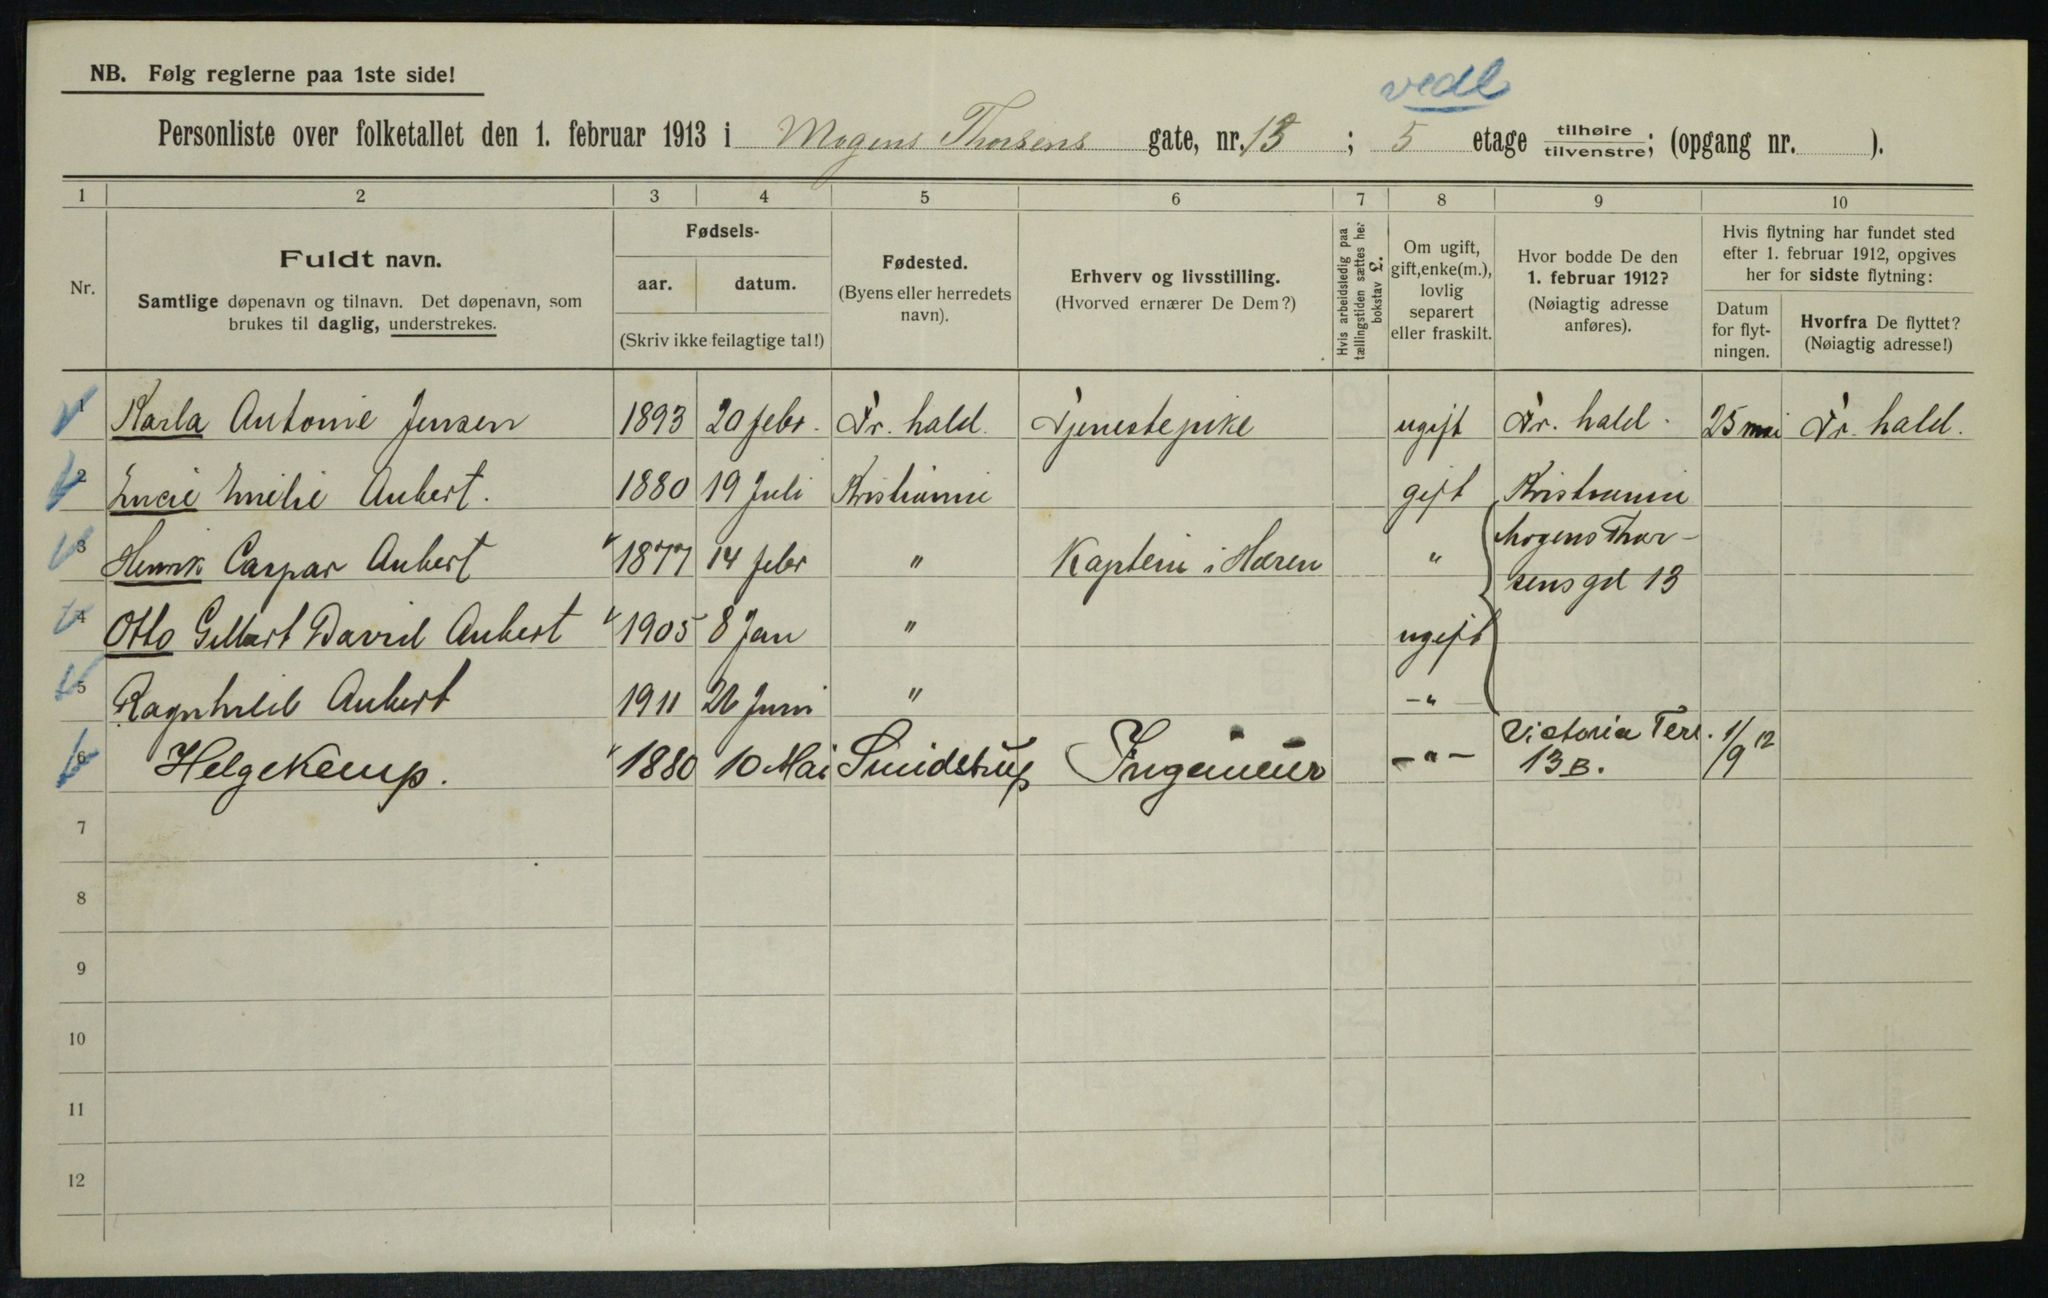 vedl
NB. Følg reglerne paa 1ste side!
Personliste over folketallet den 1. februar 1913 i Mogens Thorsens gate, nr. 13 ; 5 etage tilhøire tilvenstre; (opgang nr. ).
1 2 3 4 5 6 7 8 9 10
Nr.
Fuldt navn.
Samtlige døpenavn og tilnavn. Det døpenavn, som
brukes til daglig, understrekes.
Fødsels-
aar. datum.
(Skriv ikke feilagtige tal!)
Fødested.
(Byens eller herredets
navn).
Erhverv og livsstilling.
(Hvorved ernærer De Dem?)
Hvis arbeidsledig paa
tællingstiden sættes her
bokstav L.
Om ugift,
gift, enke(m.),
lovlig
separert
eller fraskilt.
Hvor bodde De den
1. februar 1912?
(Nøiagtig adresse
anføres).
Hvis flytning har fundet sted
efter 1. februar 1912, opgives
her for sidste flytning:
Datum
for flyt-
ningen.
Hvorfra De flyttet?
(Nøiagtig adresse!)
1 Karla Antonie Jensen 1893 20 febr. Fr. hald. Tjenestepike ugift Fr. hald. 25 mai Fr. hald.
2 Lucie Emilie Aubert. 1880 19 Juli Kristiania gift Kristiania
3 Henrik Caspar Aubert 1877 14 febr " Kaptein i Hæren " Mogens Thor-
sens gd 13
4 Otto Gilbert David Aubert 1905 8 Jan " ugift
5 Ragnhild Aubert 1911 Juni " -"
6 Helge Kemp. 1880 10 Mai Smidstrup Ingenieur -"- Victoria Terr. 1/9 12
13 B.
7
8
9
10
11
12